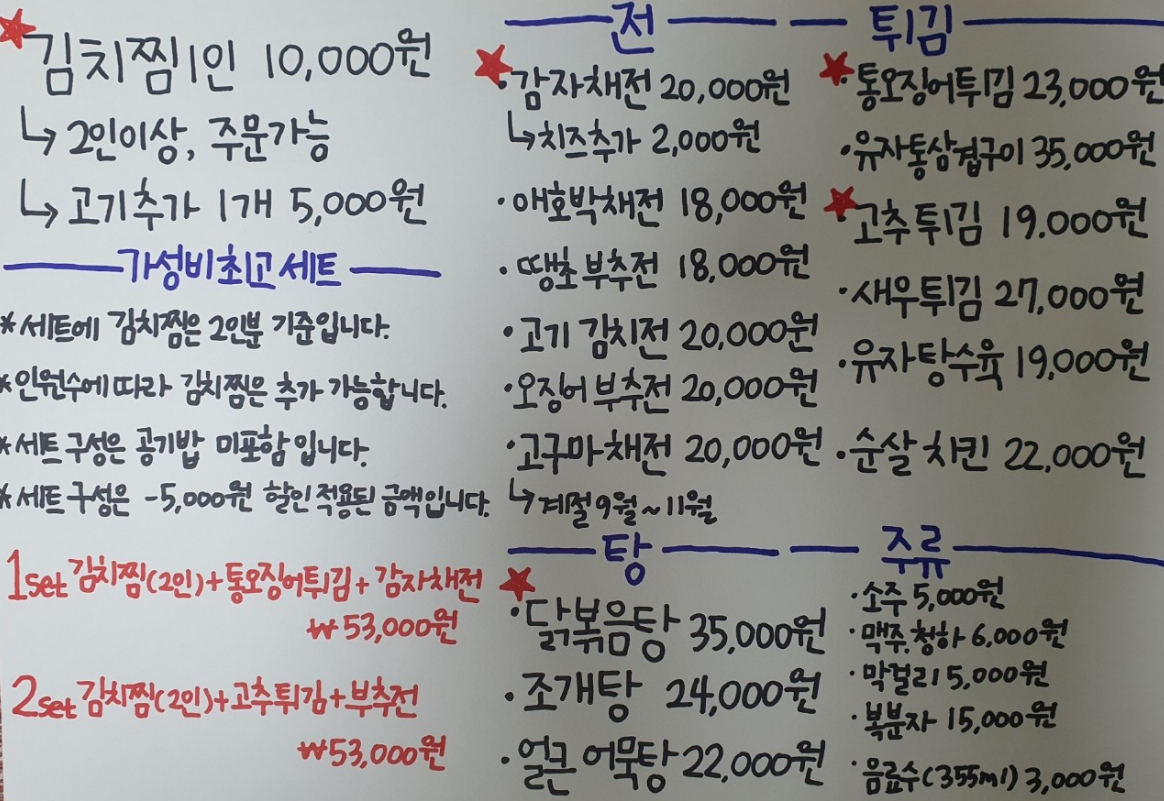 김치찜 1인 10,000원
↳ 2인이상, 주문가능
↳ 고기추가 1개 5,000원
가성비 최고 세트
* 세트에 김치찜은 2인분 기준입니다.
* 인원수에 따라 김치찜은 추가 가능합니다.
* 세트 구성은 공기밥 미포함 입니다.
* 세트 구성은 -5,000원 할인 적용된 금액입니다.
1set 김치찜(2인)+통오징어튀김+감자채전
₩53,000원
2set 김치찜(2인)+고추튀김+부추전
₩53,000원
전
· 감자채전 20,000원
↳ 치즈추가 2,000원
· 애호박채전 18,000원
· 땡초 부추전 18,000원
· 고기 김치전 20,000원
· 오징어 부추전 20,000원
· 고구마 채전 20,000원
↳ 계절 9월~11월
탕
· 닭볶음탕 35,000원
· 조개탕 24,000원
· 얼큰 어묵탕 22,000원
튀김
· 통오징어튀김 23,000원
· 유자통삼겹구이 35,000원
· 고추튀김 19.000원
· 새우튀김 27,000원
· 유자탕수육 19,000원
· 순살 치킨 22,000원
주류
· 소주 5,000원
· 맥주.청하 6,000원
· 막걸리 5,000원
· 복분자 15,000원
· 음료수(355ml) 3,000원